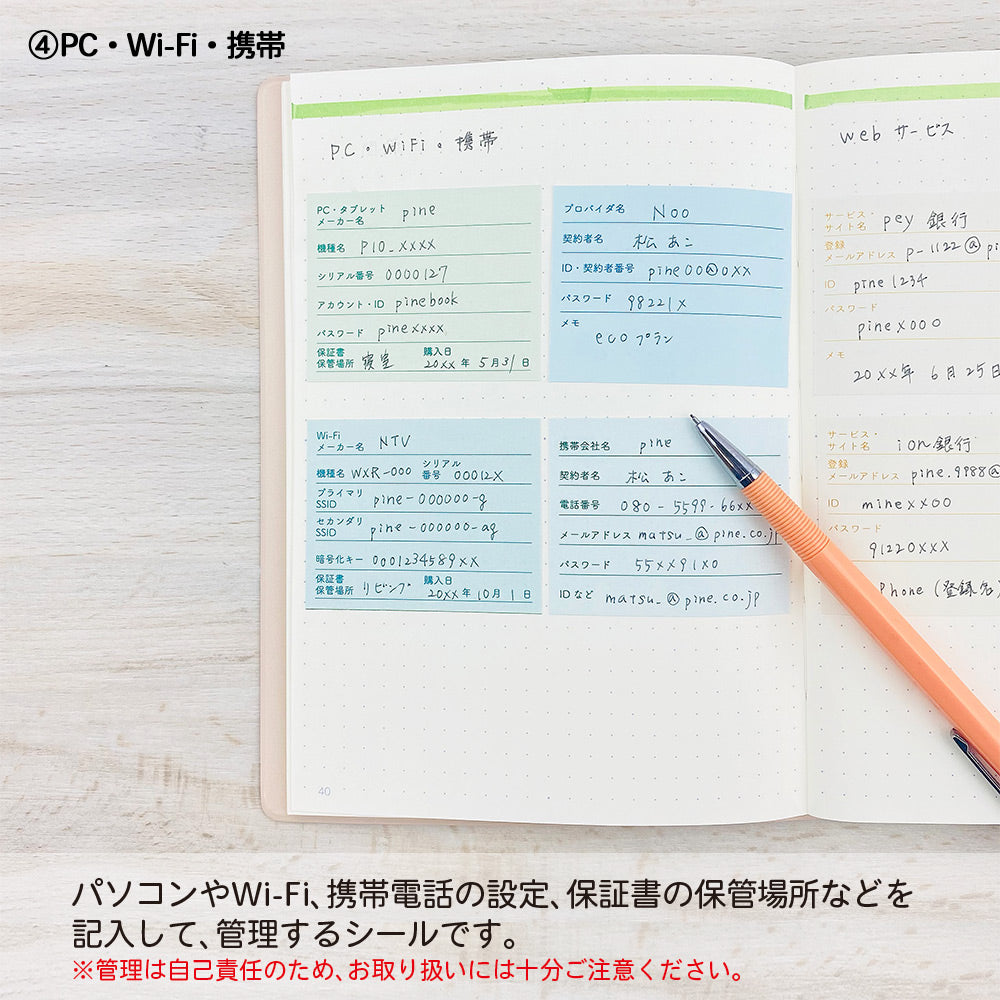 ④PC・Wi-Fi・携帯
PC・WiFi・携帯
PC・タブレット
メーカー名 pine
機種名 P10_XXXX
シリアル番号 0000127
アカウント・ID pinebook
パスワード pinexxxx
保証書
保管場所 寝室 購入日 20XX 年 5月31日
プロバイダ名 Noo
契約者名 松 あこ
ID・契約者番号 pine00@0XX
パスワード 98221X
メモ
eco プラン
Wi-Fi
メーカー名 NTV
機種名 WXR-000 シリアル番号 00012X
プライマリ
SSID pine-000000-g
セカンダリ
SSID pine-000000-ag
暗号化キー 0001234589XX
保証書
保管場所 リビング 購入日 20XX年10月1日
携帯会社名 pine
契約者名 松 あこ
電話番号 080-5599-66XX
メールアドレス matsu_@pine.co.jp
パスワード 55XX91X0
IDなど matsu_@pine.co.jp
40
web サービス
サービス・
サイト名 pey 銀行
登録
メールアドレス p-1122@pi
ID pine1234
パスワード
pinex000
メモ
20XX年 6月25日
サービス・
サイト名 ion銀行
登録
メールアドレス pine.9988@
ID minexx00
パスワード
91220XXX
Phone(登録名)
パソコンやWi-Fi、携帯電話の設定、保証書の保管場所などを
記入して、管理するシールです。
※管理は自己責任のため、お取り扱いには十分ご注意ください。